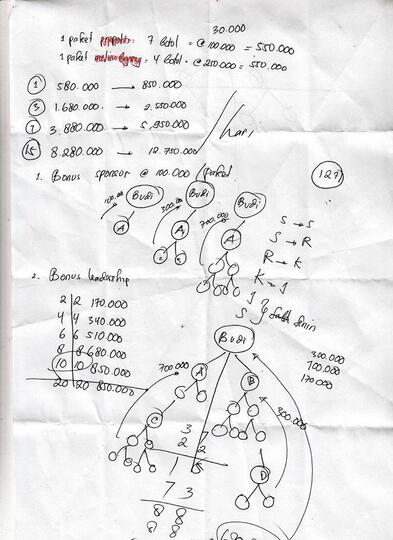 30.000
1 paket 7 botol = @ 100.000 = 550.000
1 paket 4 botol = @ 250.000 = 550.000
1 580.000 → 850.000
3 1.680.000 → 2.550.000
7 3.880.000 → 5.950.000
15 8.280.000 → 12.750.000
/ hari
1. Bonus sponsor @ 100.000 / paket
127
100.000 Budi
300.000 Budi
700.000 Budi
A A A
2 3
S → S
S → R
R → K
K → J
J
S
2. Bonus leadership
2 2 170.000
4 4 340.000
6 6 510.000
8 8 680.000
10 10 850.000
20 20 850.000
Budi
300.000
700.000
170.000
700.000 A B
300.000
C
D
3 7
2 2
1
7 3
8 8
8 8